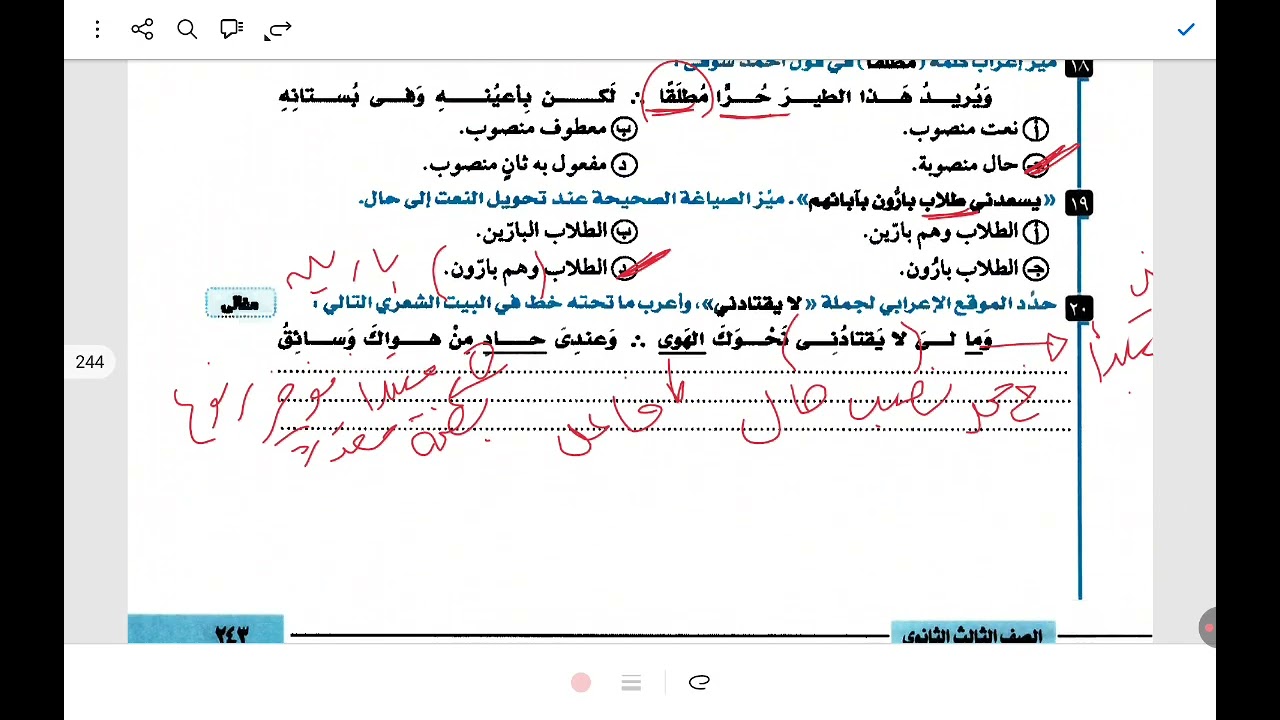 ١٨ ميّز إعراب كلمة (مطلقًا) في قول أحمد شوقي :
وَيُريــدُ هَـذا الطيـرَ حُـرًّا مُطلَقًا ∴ لَكــن بِأعيُنــهِ وَفـى بُستانِهِ
أ نعت منصوب.
ب معطوف منصوب.
جـ حال منصوبة.
د مفعول به ثانٍ منصوب.
١٩ «يسعدني طلاب بارُّون بآبائهم». ميّز الصياغة الصحيحة عند تحويل النعت إلى حال.
أ الطلاب وهم بارّين.
ب الطلاب البارّين.
جـ الطلاب بارُّون.
د الطلاب وهم بارّون.
٢٠ حدّد الموقع الإعرابي لجملة «لا يقتادني»، وأعرب ما تحته خط في البيت الشعري التالي :
مقالي
وَما لـىَ لا يَقتادُنـى نَحْـوَكَ الهَوى ∴ وَعندِىَ حــادٍ مِنْ هـواِكَ وَسـائِقُ
نصب حال
فاعل
مبتدأ
بضمة مقدرة
244
الصف الثالث الثانوي
٢٤٣